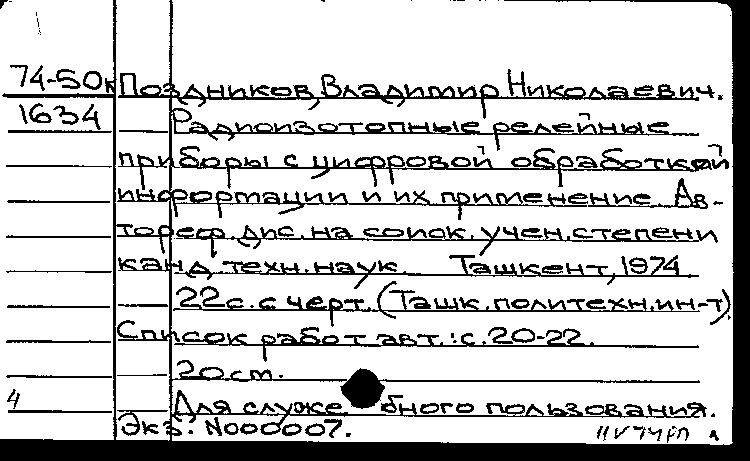 74-50к Поздников, Владимир Николаевич.
1634 Радиоизотопные релейные
приборы с цифровой обработкой
информации и их применение. Ав-
тореф. дис. на соиск. учен. степени
канд. техн. наук. Ташкент, 1974.
22с. с черт. (Ташк. политехн. ин-т)
Список работ авт.: с. 20-22.
20 см.
4 Для служебного пользования.
Экз. N000007.